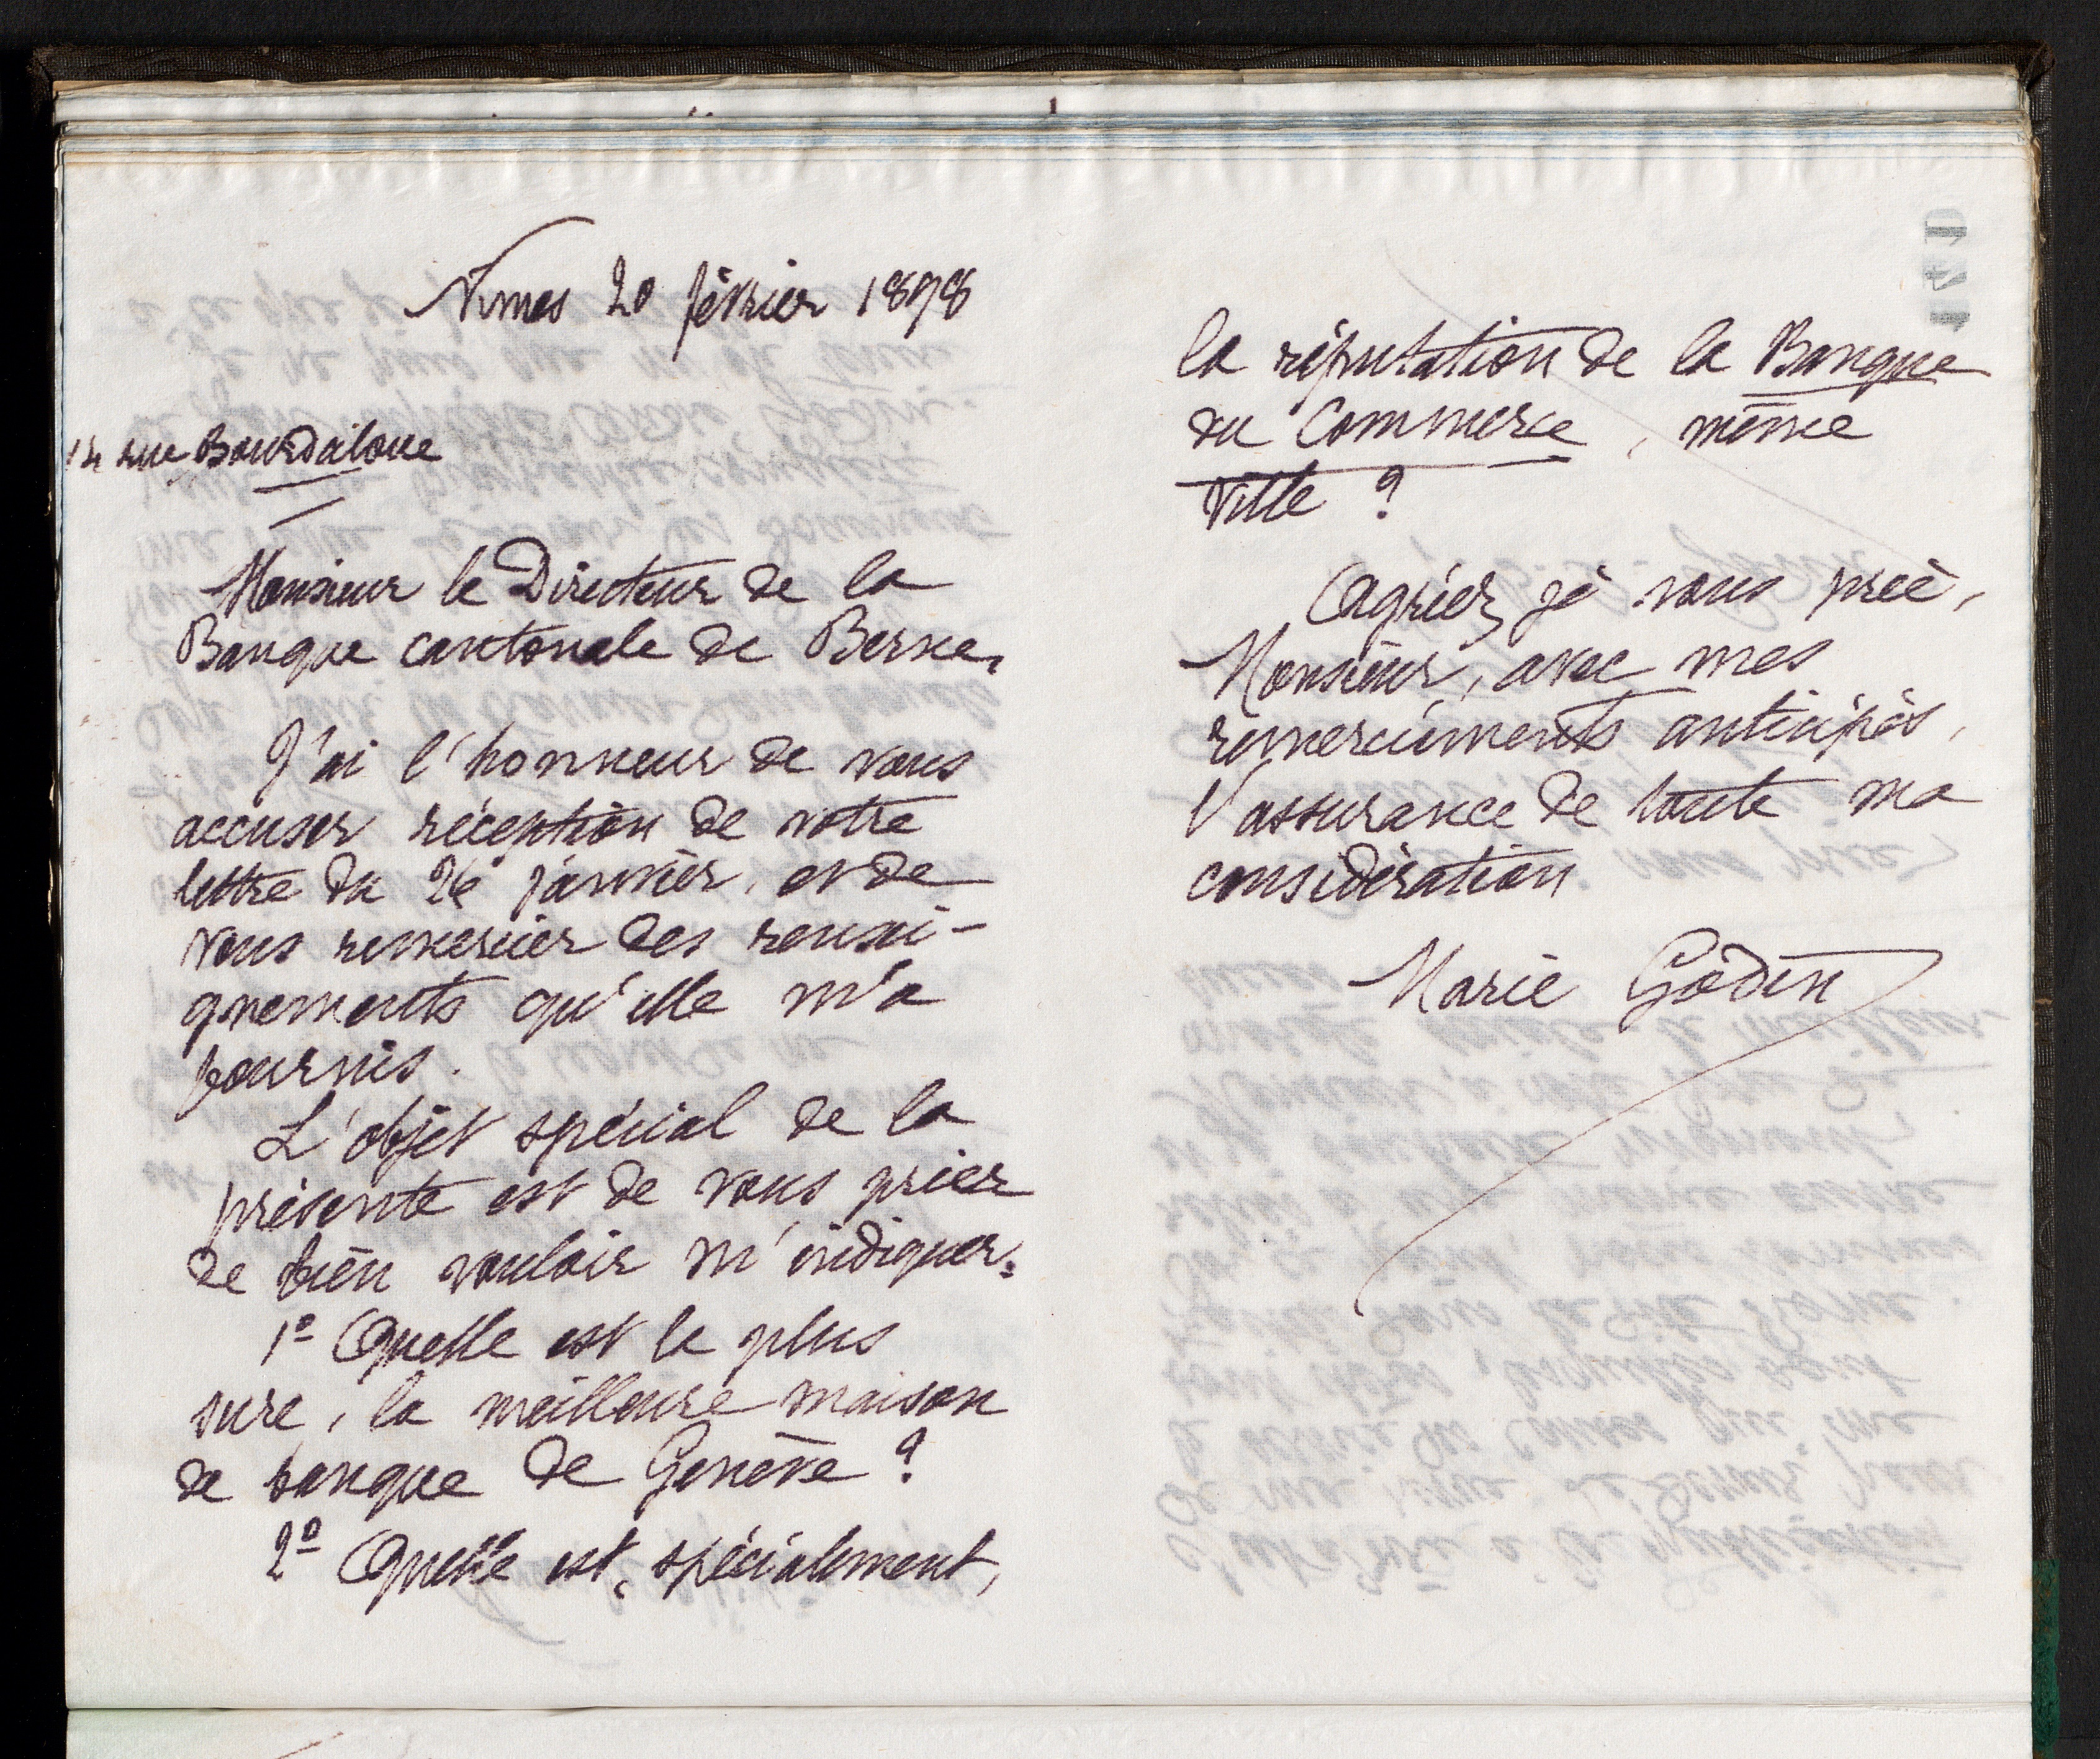 Nimes 20 février 1898
14 rue Bourdaloue
Monsieur le Directeur de la
Banque cantonale de Berne,
J'ai l'honneur de vous
accuser réception de votre
lettre du 26 janvier, et de
vous remercier des rensei-
gnements qu'elle m'a
fournis.
L'objet spécial de la
présente est de vous prier
de bien vouloir m'indiquer:
1º Quelle est la plus
sure, la meilleure maison
de banque de Genève ?
2º Quelle est, spécialement,
la réputation de la Banque
du Commerce, même
ville ?
Agréez, je vous prie,
Monsieur, avec mes
remerciements anticipés,
l'assurance de toute ma
considération
Marie Godin